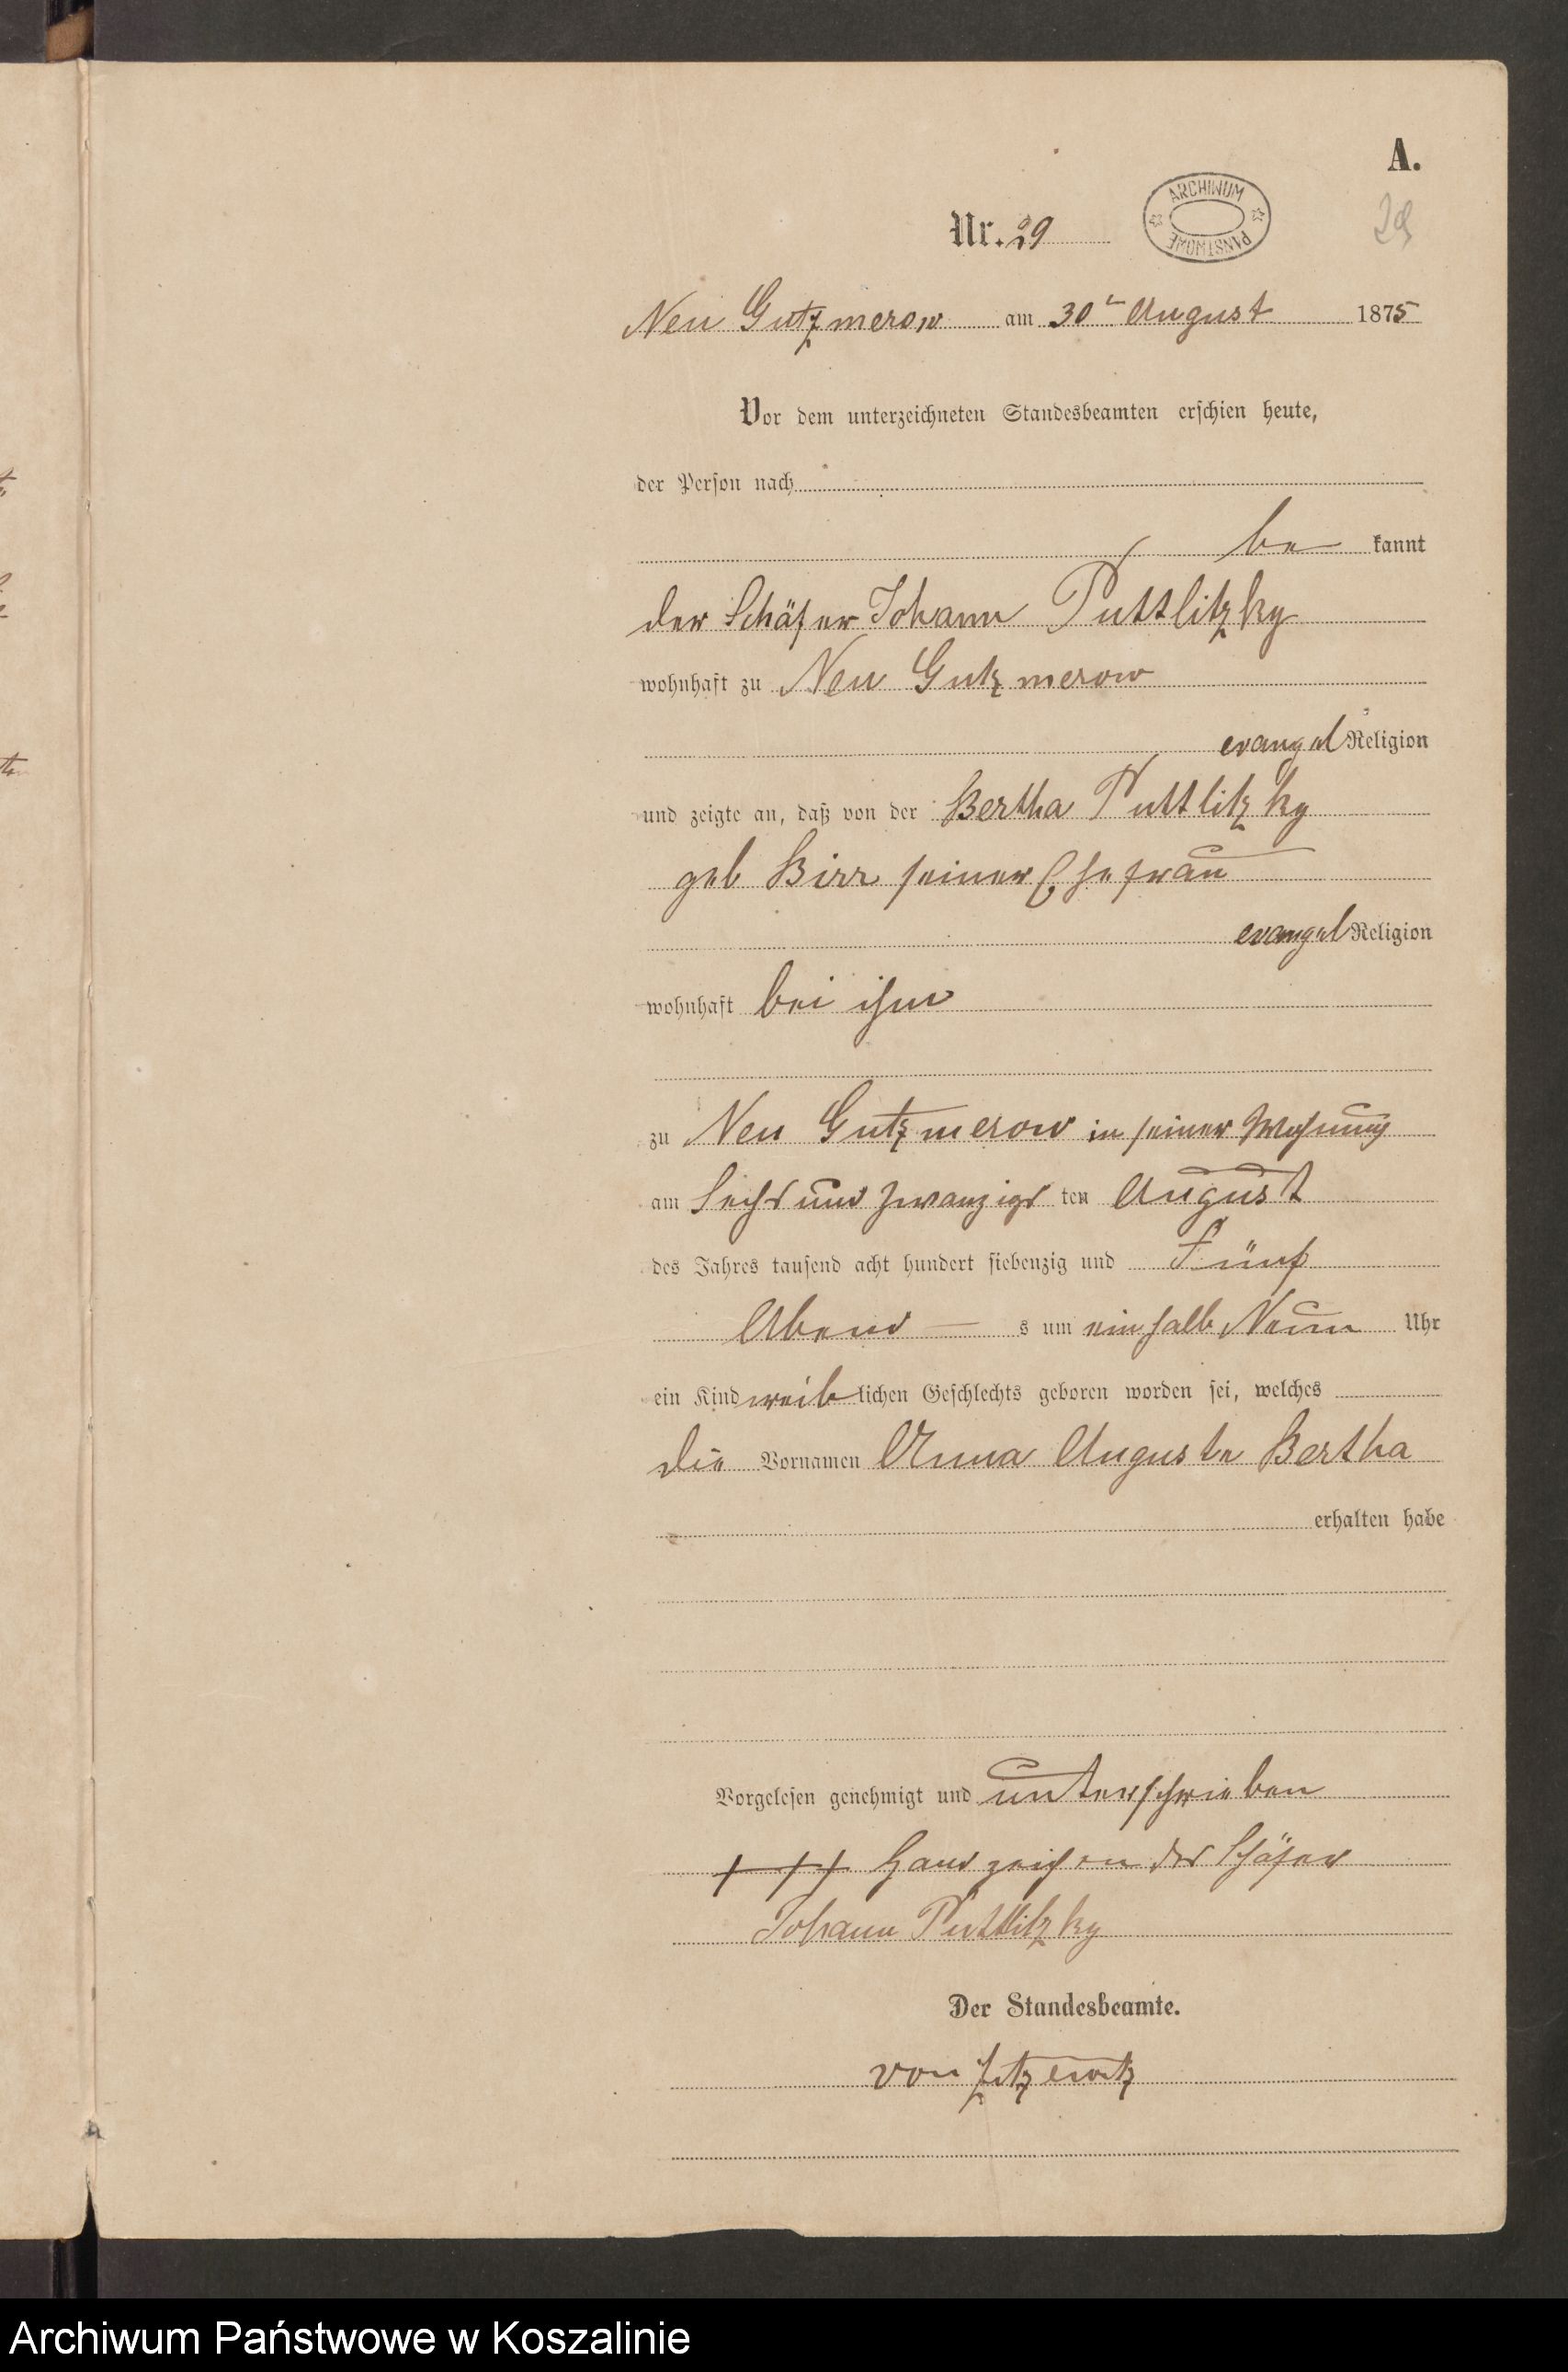 A.
ARCHIWUM PAŃSTWOWE
Nr. 29
29
Neu Gutzmerow am 30t August 1875
Vor dem unterzeichneten Standesbeamten erschien heute,
der Person nach
be kannt
der Schäfer Johann Puttlitzky
wohnhaft zu Neu Gutzmerow
evangel Religion
und zeigte an, daß von der Bertha Puttlitzky
geb Birr seiner Ehefrau
evangel Religion
wohnhaft bei ihm
zu Neu Gutzmerow in seiner Wohnung
am Sechs und zwanzigs ten August
des Jahres tausend acht hundert siebenzig und Fünf
Abend s um ein halb Neun Uhr
ein Kind weib lichen Geschlechts geboren worden sei, welches
die Vornamen Anna Auguste Bertha
erhalten habe
Vorgelesen genehmigt und unterschrieben
+ + + Handzeichen des Schäfer
Johann Puttlitzky
Der Standesbeamte.
von Zitzewitz
Archiwum Państwowe w Koszalinie